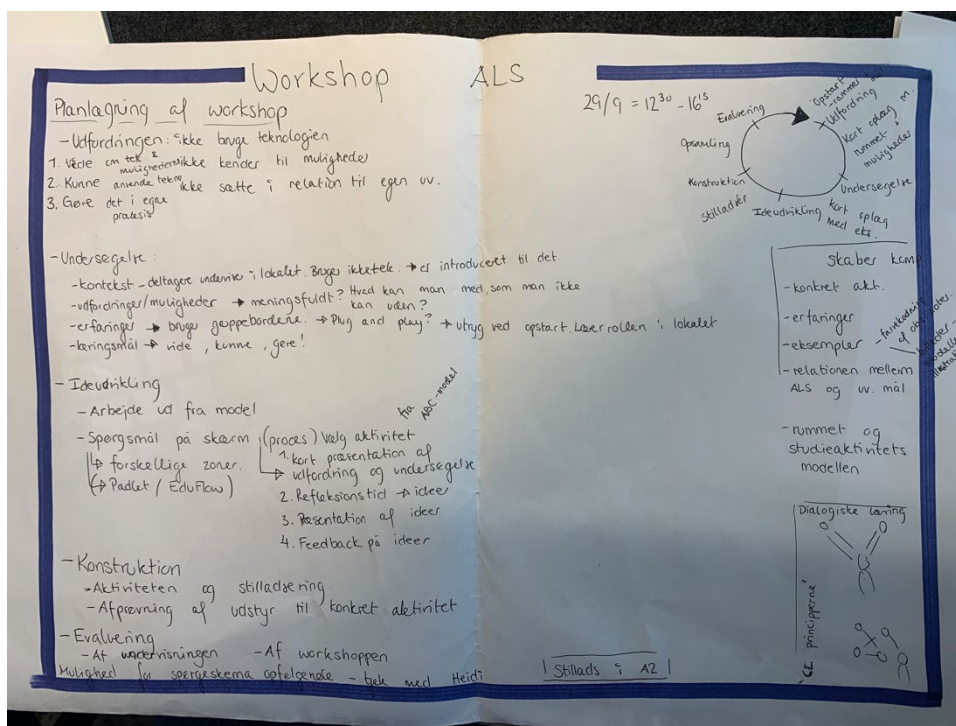 Workshop ALS
Planlægning af workshop
- Udfordringen: ikke bruge teknologien
1. Vide om tek & muligheder ikke kender til muligheder
2. Kunne anvende tekno ikke sætte i relation til egen uv.
3. Gøre det i egne praksis
- Undersøgelse:
- kontekst - deltagere undervise i lokalet. Bruges ikke tek. → er introduceret til det
- udfordringer/muligheder → meningsfuldt? Hvad kan man med, som man ikke
kan uden?
- erfaringer → bruge gruppebordene. → Plug and play? → utryg ved opstart. Lærerrollen i lokalet
- læringsmål → vide, kunne, gøre!
- Ideudvikling
- Arbejde ud fra model
fra ABC-model
- Spørgsmål på skærm (proces) Vælg aktivitet
↳ forskellige zoner.
(↳ Padlet / EduFlow)
1. kort præsentation af
↳ udfordring og undersøgelse
2. Refleksionstid → ideer
3. Præsentation af ideer
4. Feedback på ideer
- Konstruktion
- Aktiviteten og stilladsering
- Afprøvning af udstyr til konkret aktivitet
- Evaluering
- Af undervisningen - Af workshoppen
Mulighed for spørgeskema opfølgende - tjek med Heidi
29/9 = 12³⁰ - 16¹⁵
Opstart
- rammer
Udfordring
Kort oplæg m.
rummet
muligheder
Undersøgelse
kort oplæg
med eks.
Ideudvikling
Stilladsér
Konstruktion
Opsamling
Evaluering
Skaber
- konkret akt.
- erfaringer
- eksempler
- relationen mellem
ALS og uv. mål
- rummet og
studieaktivitets
modellen
Dialogiske læring
principperne
| Stillads i A2 |